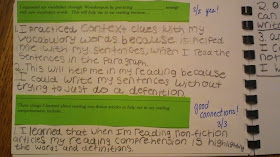 I expanded my vocabulary through Wonderopolis by practicing
strategy
will use vocabulary words. This will help me in my reading because
2/2 yes!
1. I practiced Context clues with my
vocabulary words because it helped
me with my sentences, when I read the
sentences in the paragraph.
2. This will help me in my reading because
I could write my sentences without
trying to just do a definition.
Three things I learned about reading non-fiction articles to help me in my reading
comprehension include:
good
connections!
3/3
I learned that when I'm reading non-fiction
articles my reading comprehension is highlighting
the words and definitions.